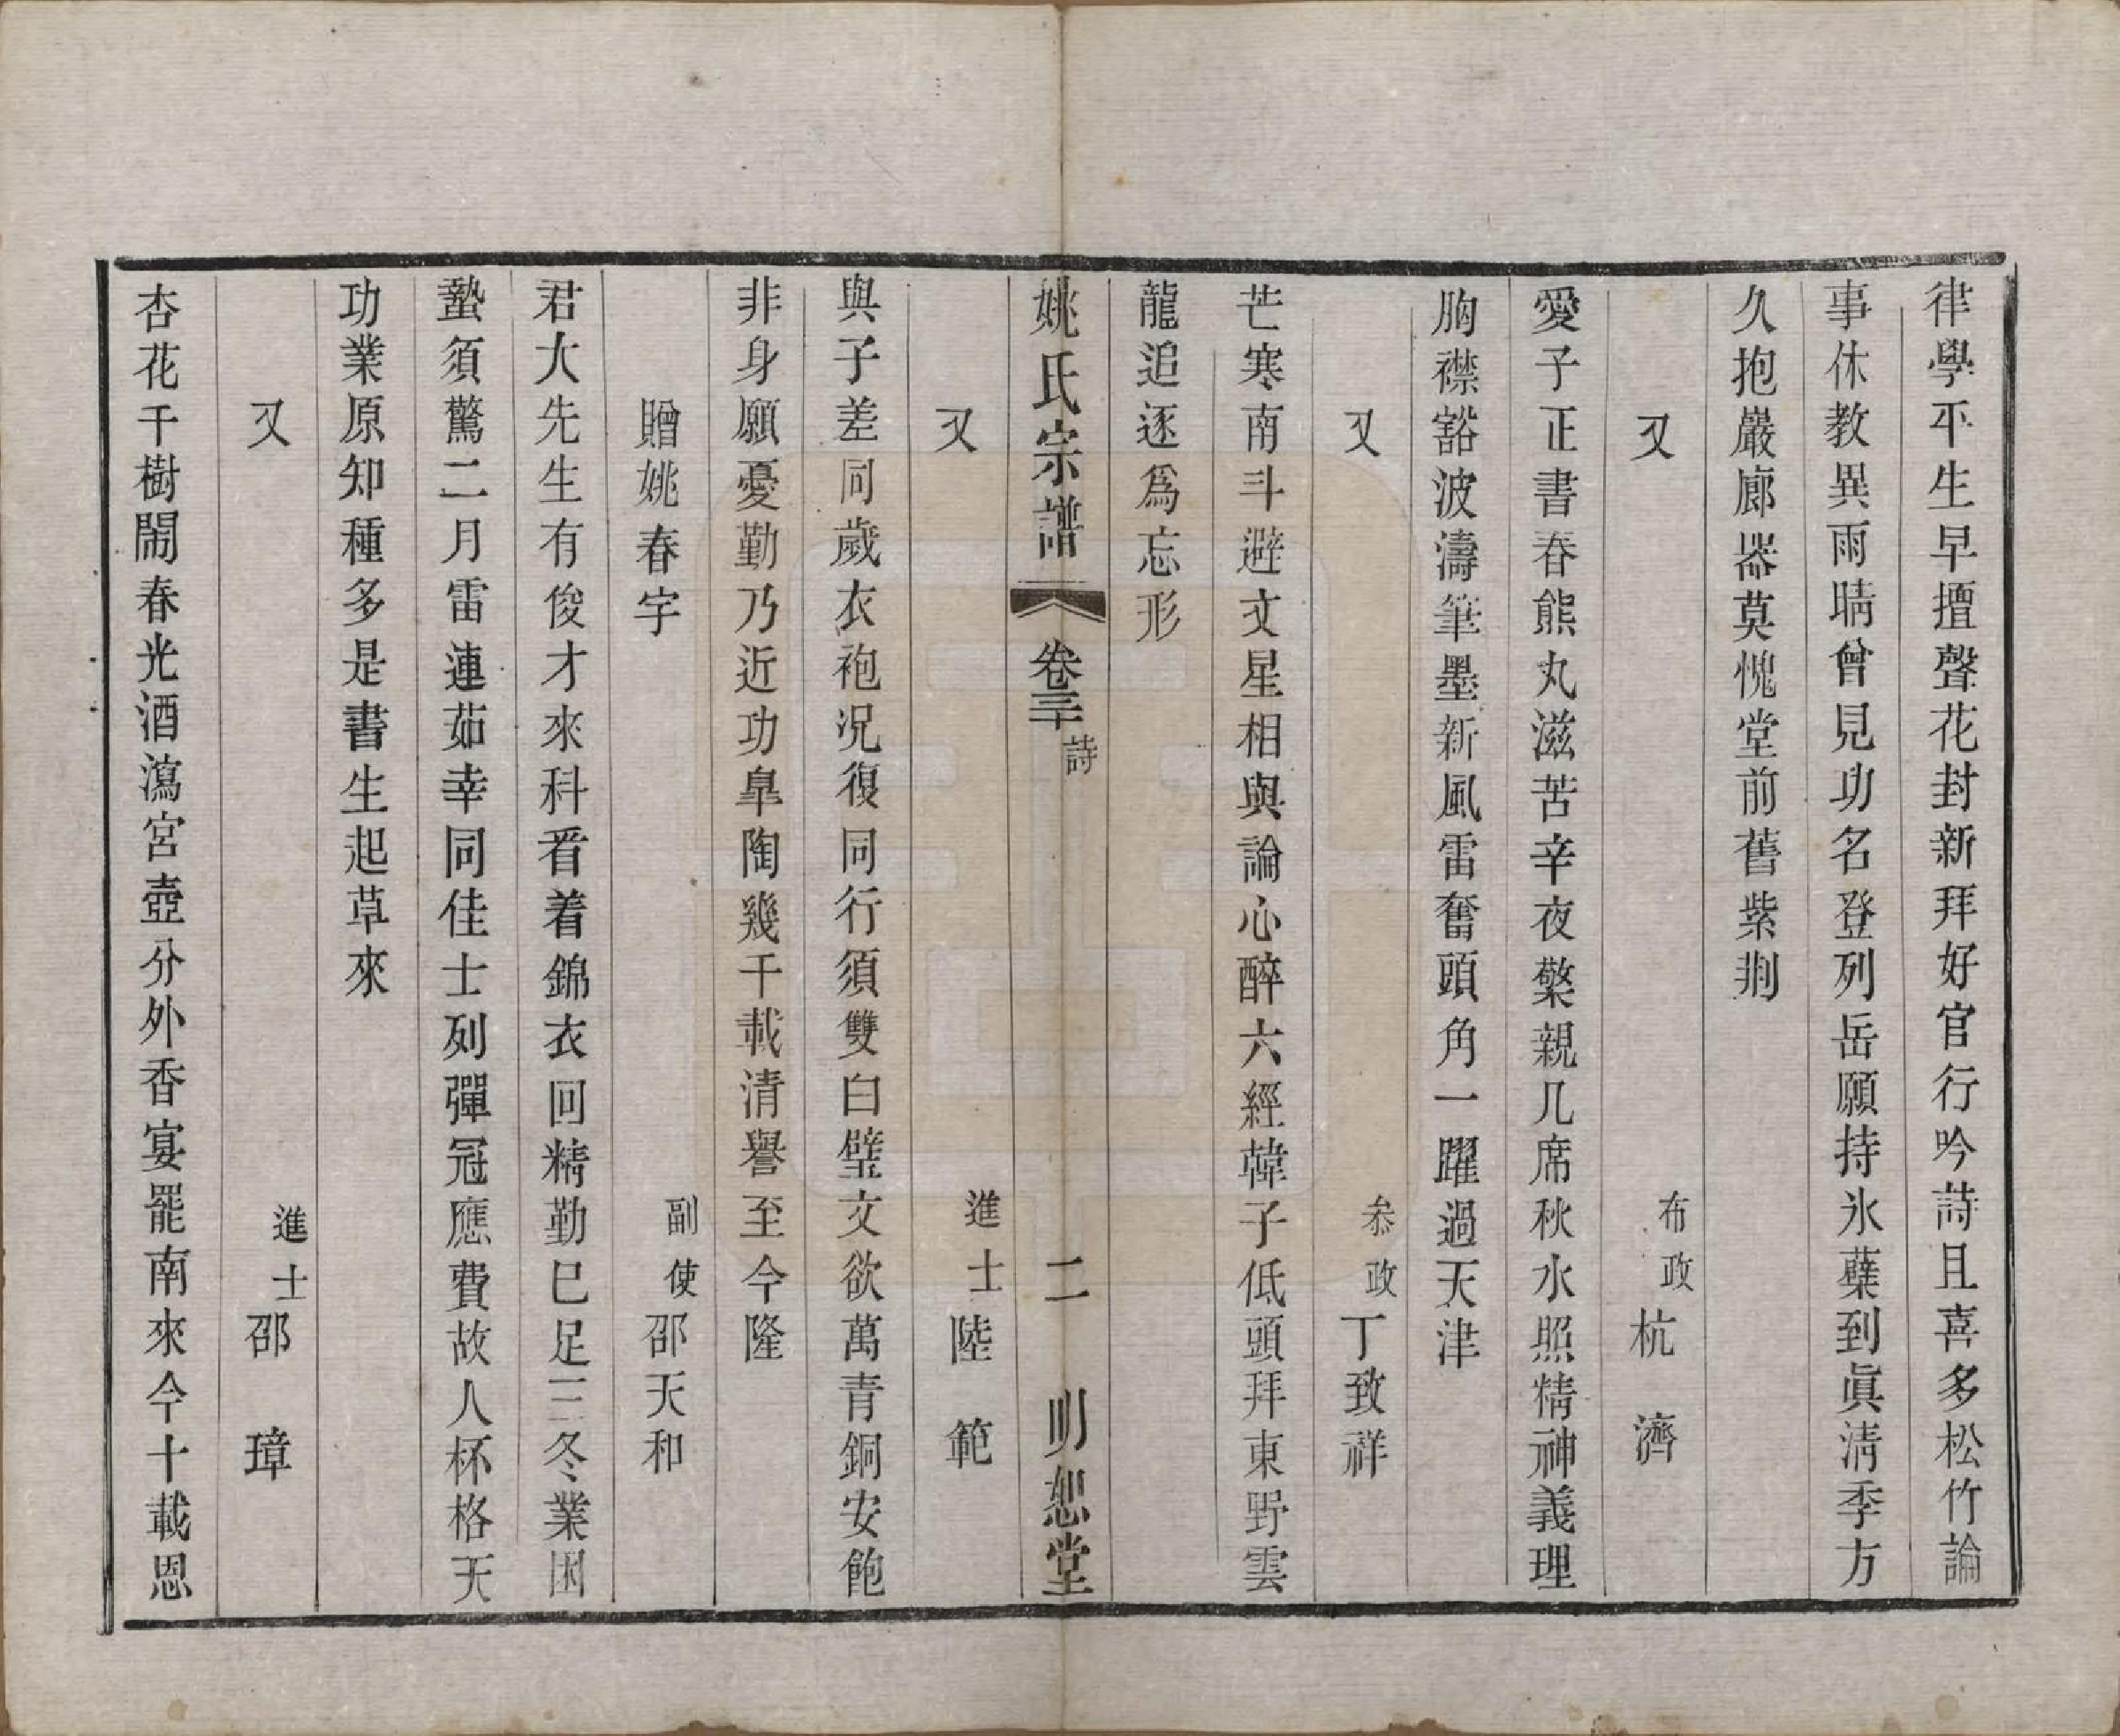 律學平生早擅聲花封新拜好官行吟詩且喜多松竹論
事休教異雨晴曾見功名登列岳願持氷蘗到眞清季方
久抱巖廊器莫愧堂前舊紫荆
又　布政杭　濟
愛子正書春熊丸滋苦辛夜檠親几席秋水照精神義理
胸襟豁波濤筆墨新風雷奮頭角一躍過天津
又　叅政丁致祥
芒寒南斗避文星相與論心醉六經韓子低頭拜東野雲
龍追逐爲忘形
姚氏宗譜　卷三十　詩　二　明恕堂
又　進士陸　範
與子差同歲衣袍况復同行須雙白璧文欲萬青銅安飽
非身願憂勤乃近功臯陶幾千載清譽至今隆
贈姚春宇　副使邵天和
君大先生有俊才才來科看着錦衣回精勤已足三冬業困
蟄須驚二月雷連茹幸同佳士列彈冠應費故人杯格天
功業原知種多是書生起草來
又　進士邵　璋
杏花千樹閙春光酒瀉宮壺分外香宴罷南來今十載恩